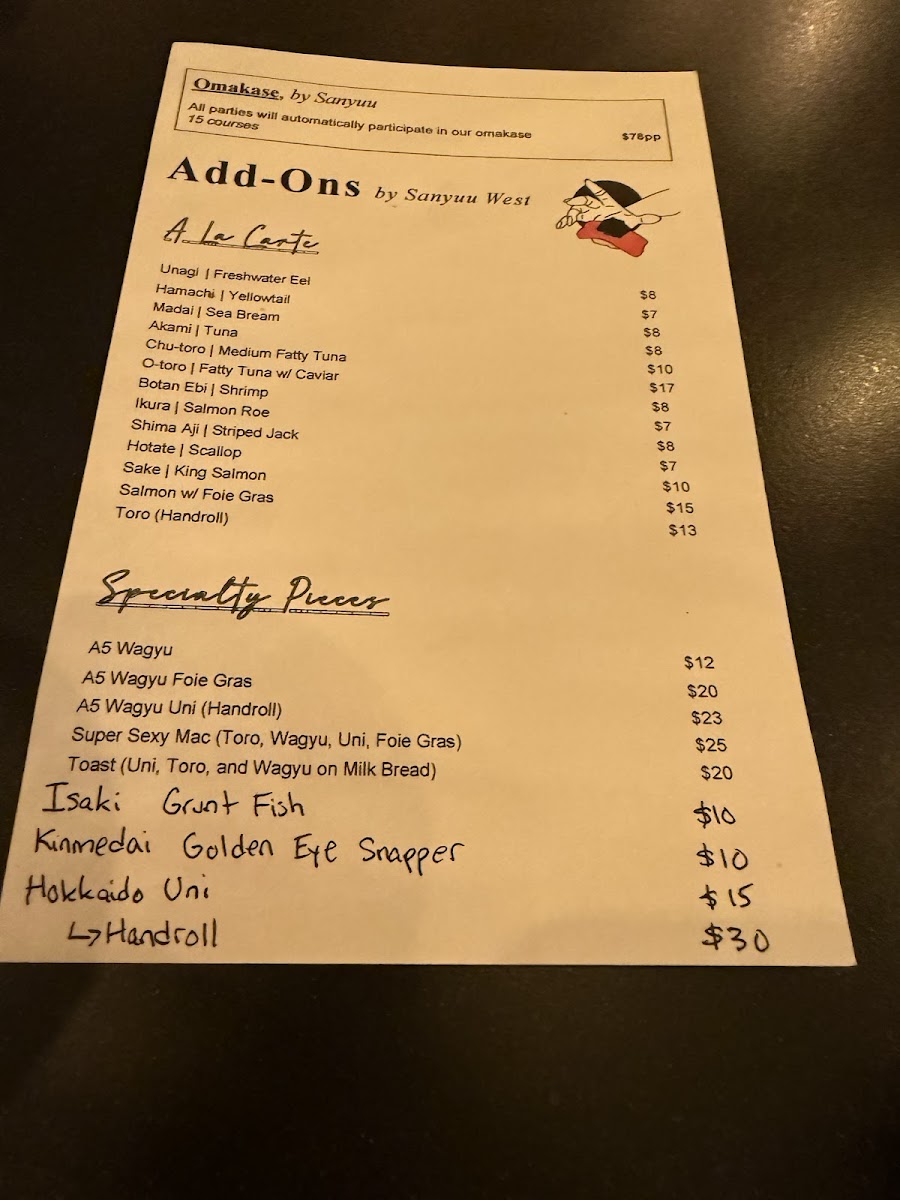 Omakase, by Sanyuu
All parties will automatically participate in our omakase $78pp
15 courses
Add-Ons by Sanyuu West
A La Carte
Unagi | Freshwater Eel $8
Hamachi | Yellowtail $7
Madai | Sea Bream $8
Akami | Tuna $8
Chu-toro | Medium Fatty Tuna $10
O-toro | Fatty Tuna w/ Caviar $17
Botan Ebi | Shrimp $8
Ikura | Salmon Roe $7
Shima Aji | Striped Jack $8
Hotate | Scallop $7
Sake | King Salmon $10
Salmon w/ Foie Gras $15
Toro (Handroll) $13
Specialty Pieces
A5 Wagyu $12
A5 Wagyu Foie Gras $20
A5 Wagyu Uni (Handroll) $23
Super Sexy Mac (Toro, Wagyu, Uni, Foie Gras) $25
Toast (Uni, Toro, and Wagyu on Milk Bread) $20
Isaki Grunt Fish $10
Kinmedai Golden Eye Snapper $10
Hokkaido Uni $15
↳ Handroll $30